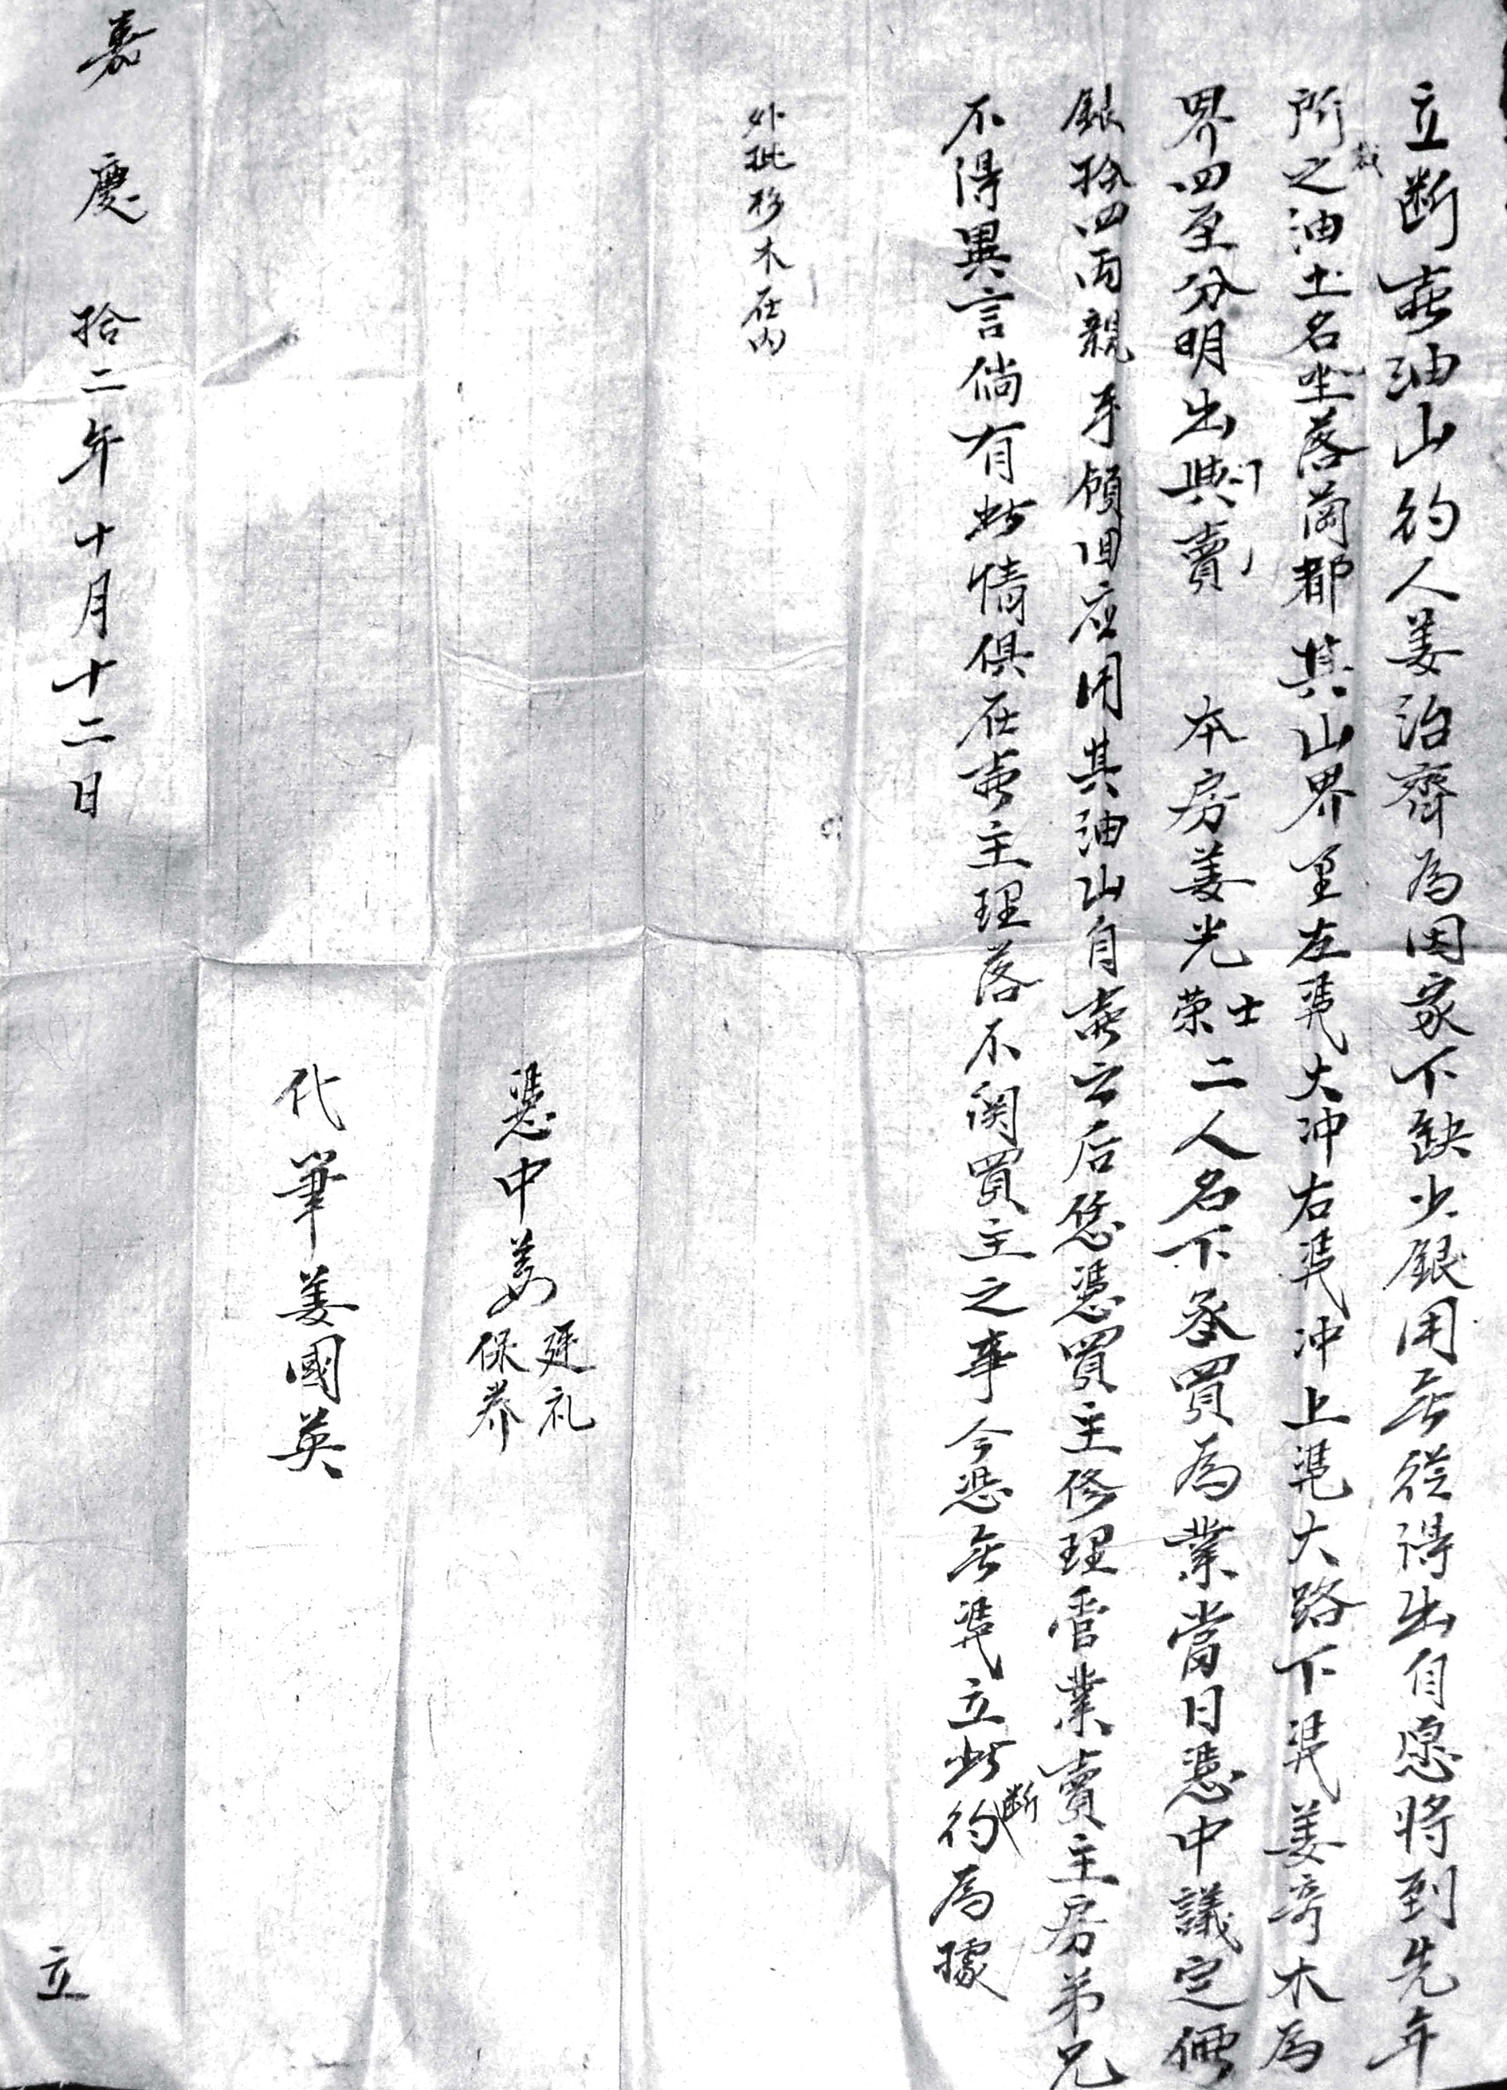 立断賣油山約人姜治齊為因家下缺少銀用無從得出自愿將到先年
所栽之油土名坐落崗都其山界至左凴大冲右凴冲上凴大路下凴姜奇木為
界四至分明出典賣 本房姜光士荣二人名下承買為業當日憑中議定價
銀拾四両親手領回应用其油山自賣之后恁憑買主修理管業賣主房弟兄
不得異言倘有此情俱在賣主理落不関買主之事今恐無凴立此断約為據
外批杉木在内
憑中姜廷礼保养
代筆姜國英
嘉慶拾二年十月十二日 立